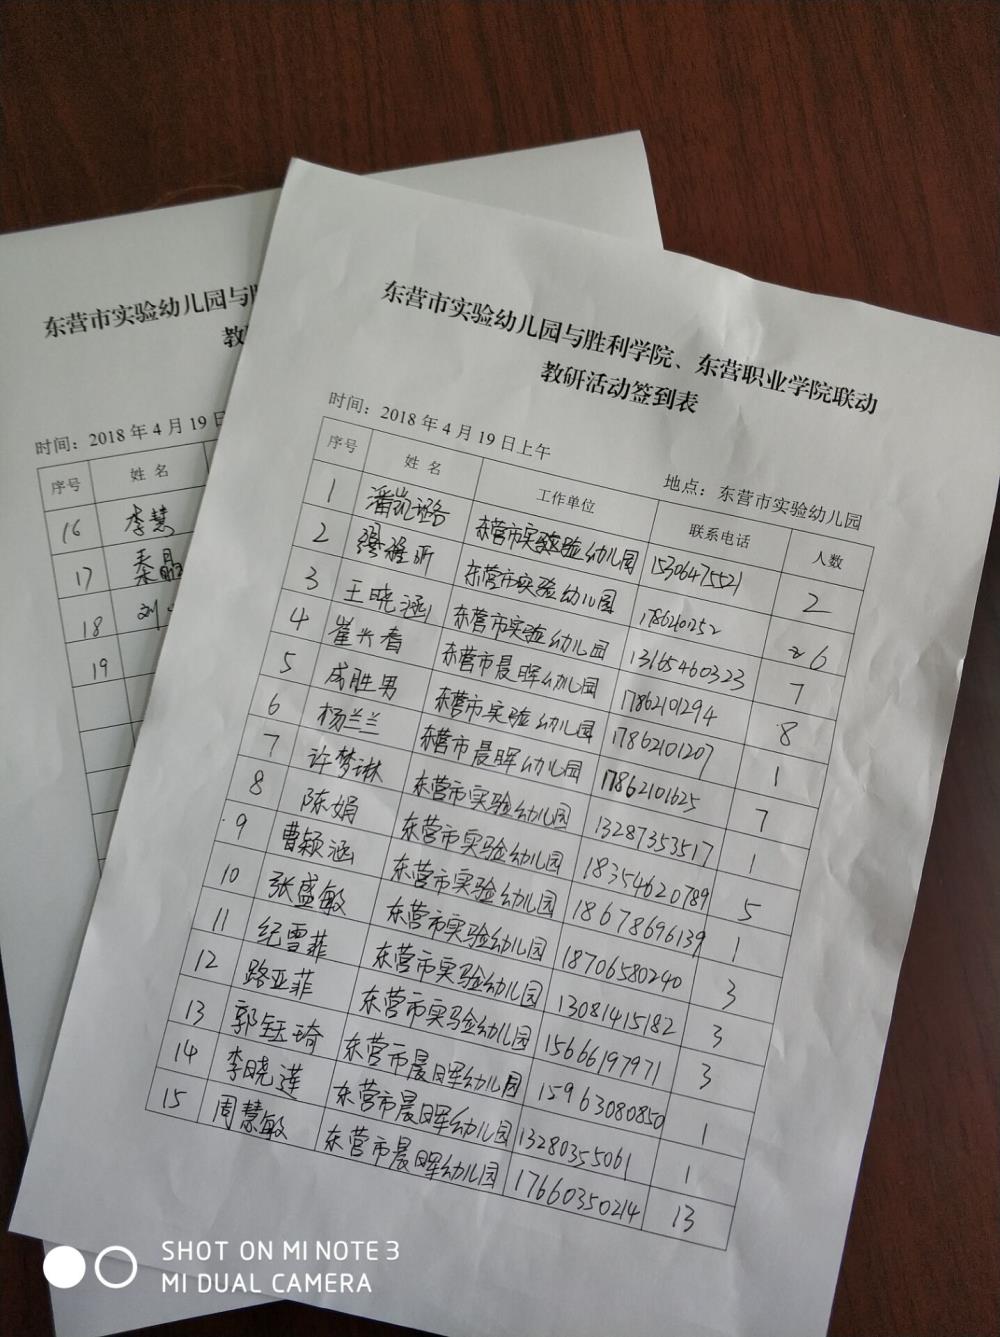 东营市实验幼儿园与胜利学院、东营职业学院联动
教研活动签到表
时间：2018 年 4 月 19 日上午 地点：东营市实验幼儿园
序号 姓 名 工作单位 联系电话 人数
1 潘凯璐 东营市实验幼儿园 15306475521 2
2 程 东营市实验幼儿园 1786210252 6
3 王晓涵 东营市实验幼儿园 13165460323 7
4 崔兴春 东营市晨晖幼儿园 17862101294 8
5 成胜男 东营市实验幼儿园 17862101207 1
6 杨兰兰 东营市晨晖幼儿园 17862101625 7
7 许梦琳 东营市实验幼儿园 13287353517 1
8 陈娟 东营市实验幼儿园 18354620789 5
9 曹颖涵 东营市实验幼儿园 18678696139 1
10 张盛敏 东营市实验幼儿园 18706580240 3
11 纪雪菲 东营市实验幼儿园 13081415182 3
12 路亚菲 东营市实验幼儿园 15666197971 3
13 郭钰琦 东营市晨晖幼儿园 15963080850 1
14 李晓莲 东营市晨晖幼儿园 13280355061 1
15 周慧敏 东营市晨晖幼儿园 17660350214 13
东营市实验幼儿园与
教
时间：2018 年 4 月 19 日
序号 姓 名
16 李慧
17 秦
18 刘
19
SHOT ON MI NOTE 3
MI DUAL CAMERA